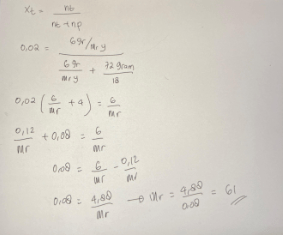 Xt = nt / nt + np
0,02 = 6 gr/Mr y / 6 gr/Mr y + 72 gram/18
0,02 ( 6/Mr + 4 ) = 6/Mr
0,12/Mr + 0,08 = 6/Mr
0,08 = 6/Mr - 0,12/Mr
0,08 = 4,88/Mr → Mr = 4,88/0,08 = 61